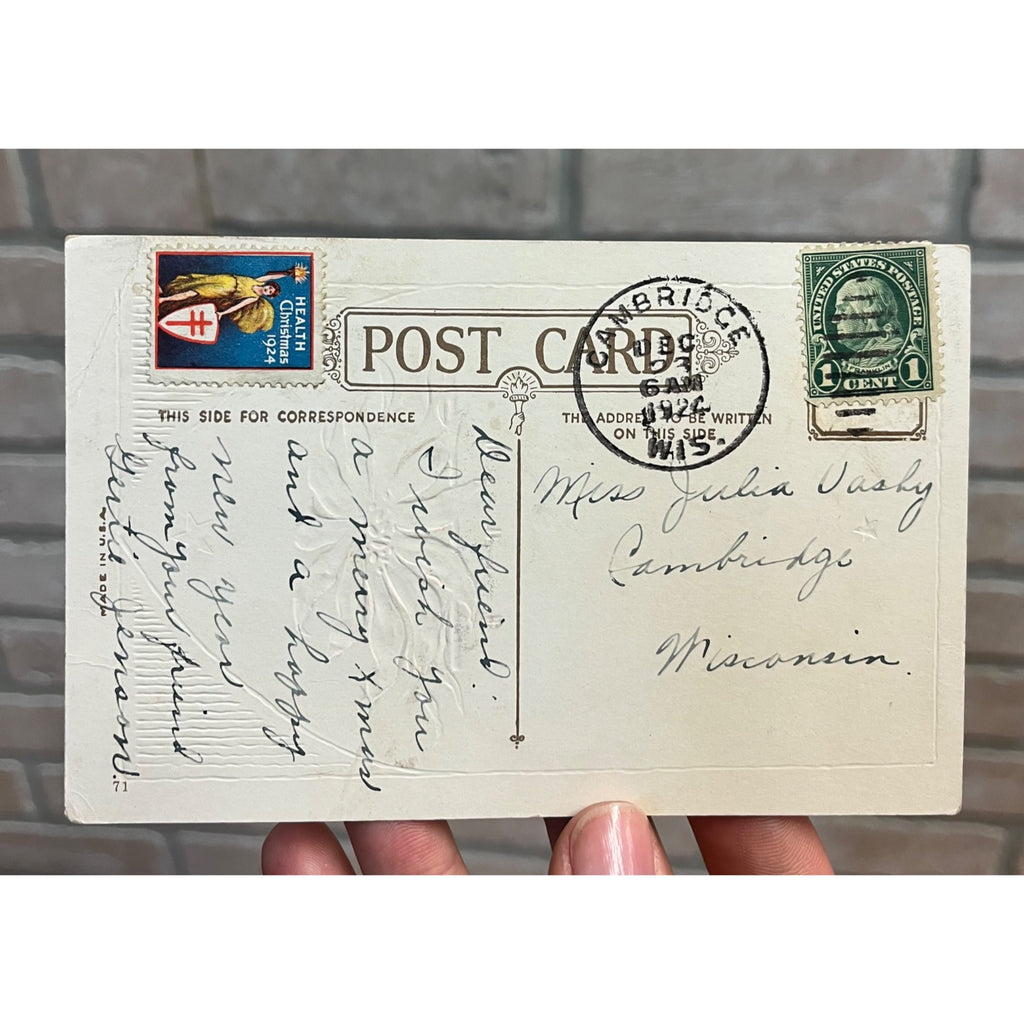 HEALTH
Christmas
1924
POST CARD
THIS SIDE FOR CORRESPONDENCE
THE ADDRESS TO BE WRITTEN
ON THIS SIDE
CAMBRIDGE
DEC
6 AM
1924
WIS.
UNITED STATES POSTAGE
FRANKLIN
1 CENT 1
Dear friend.
I wish you
a merry Xmas
and a happy
new year
from your friend
Gertie Jenson.
Miss Julia Vasby
Cambridge
Wisconsin.
MADE IN U.S.A.
71